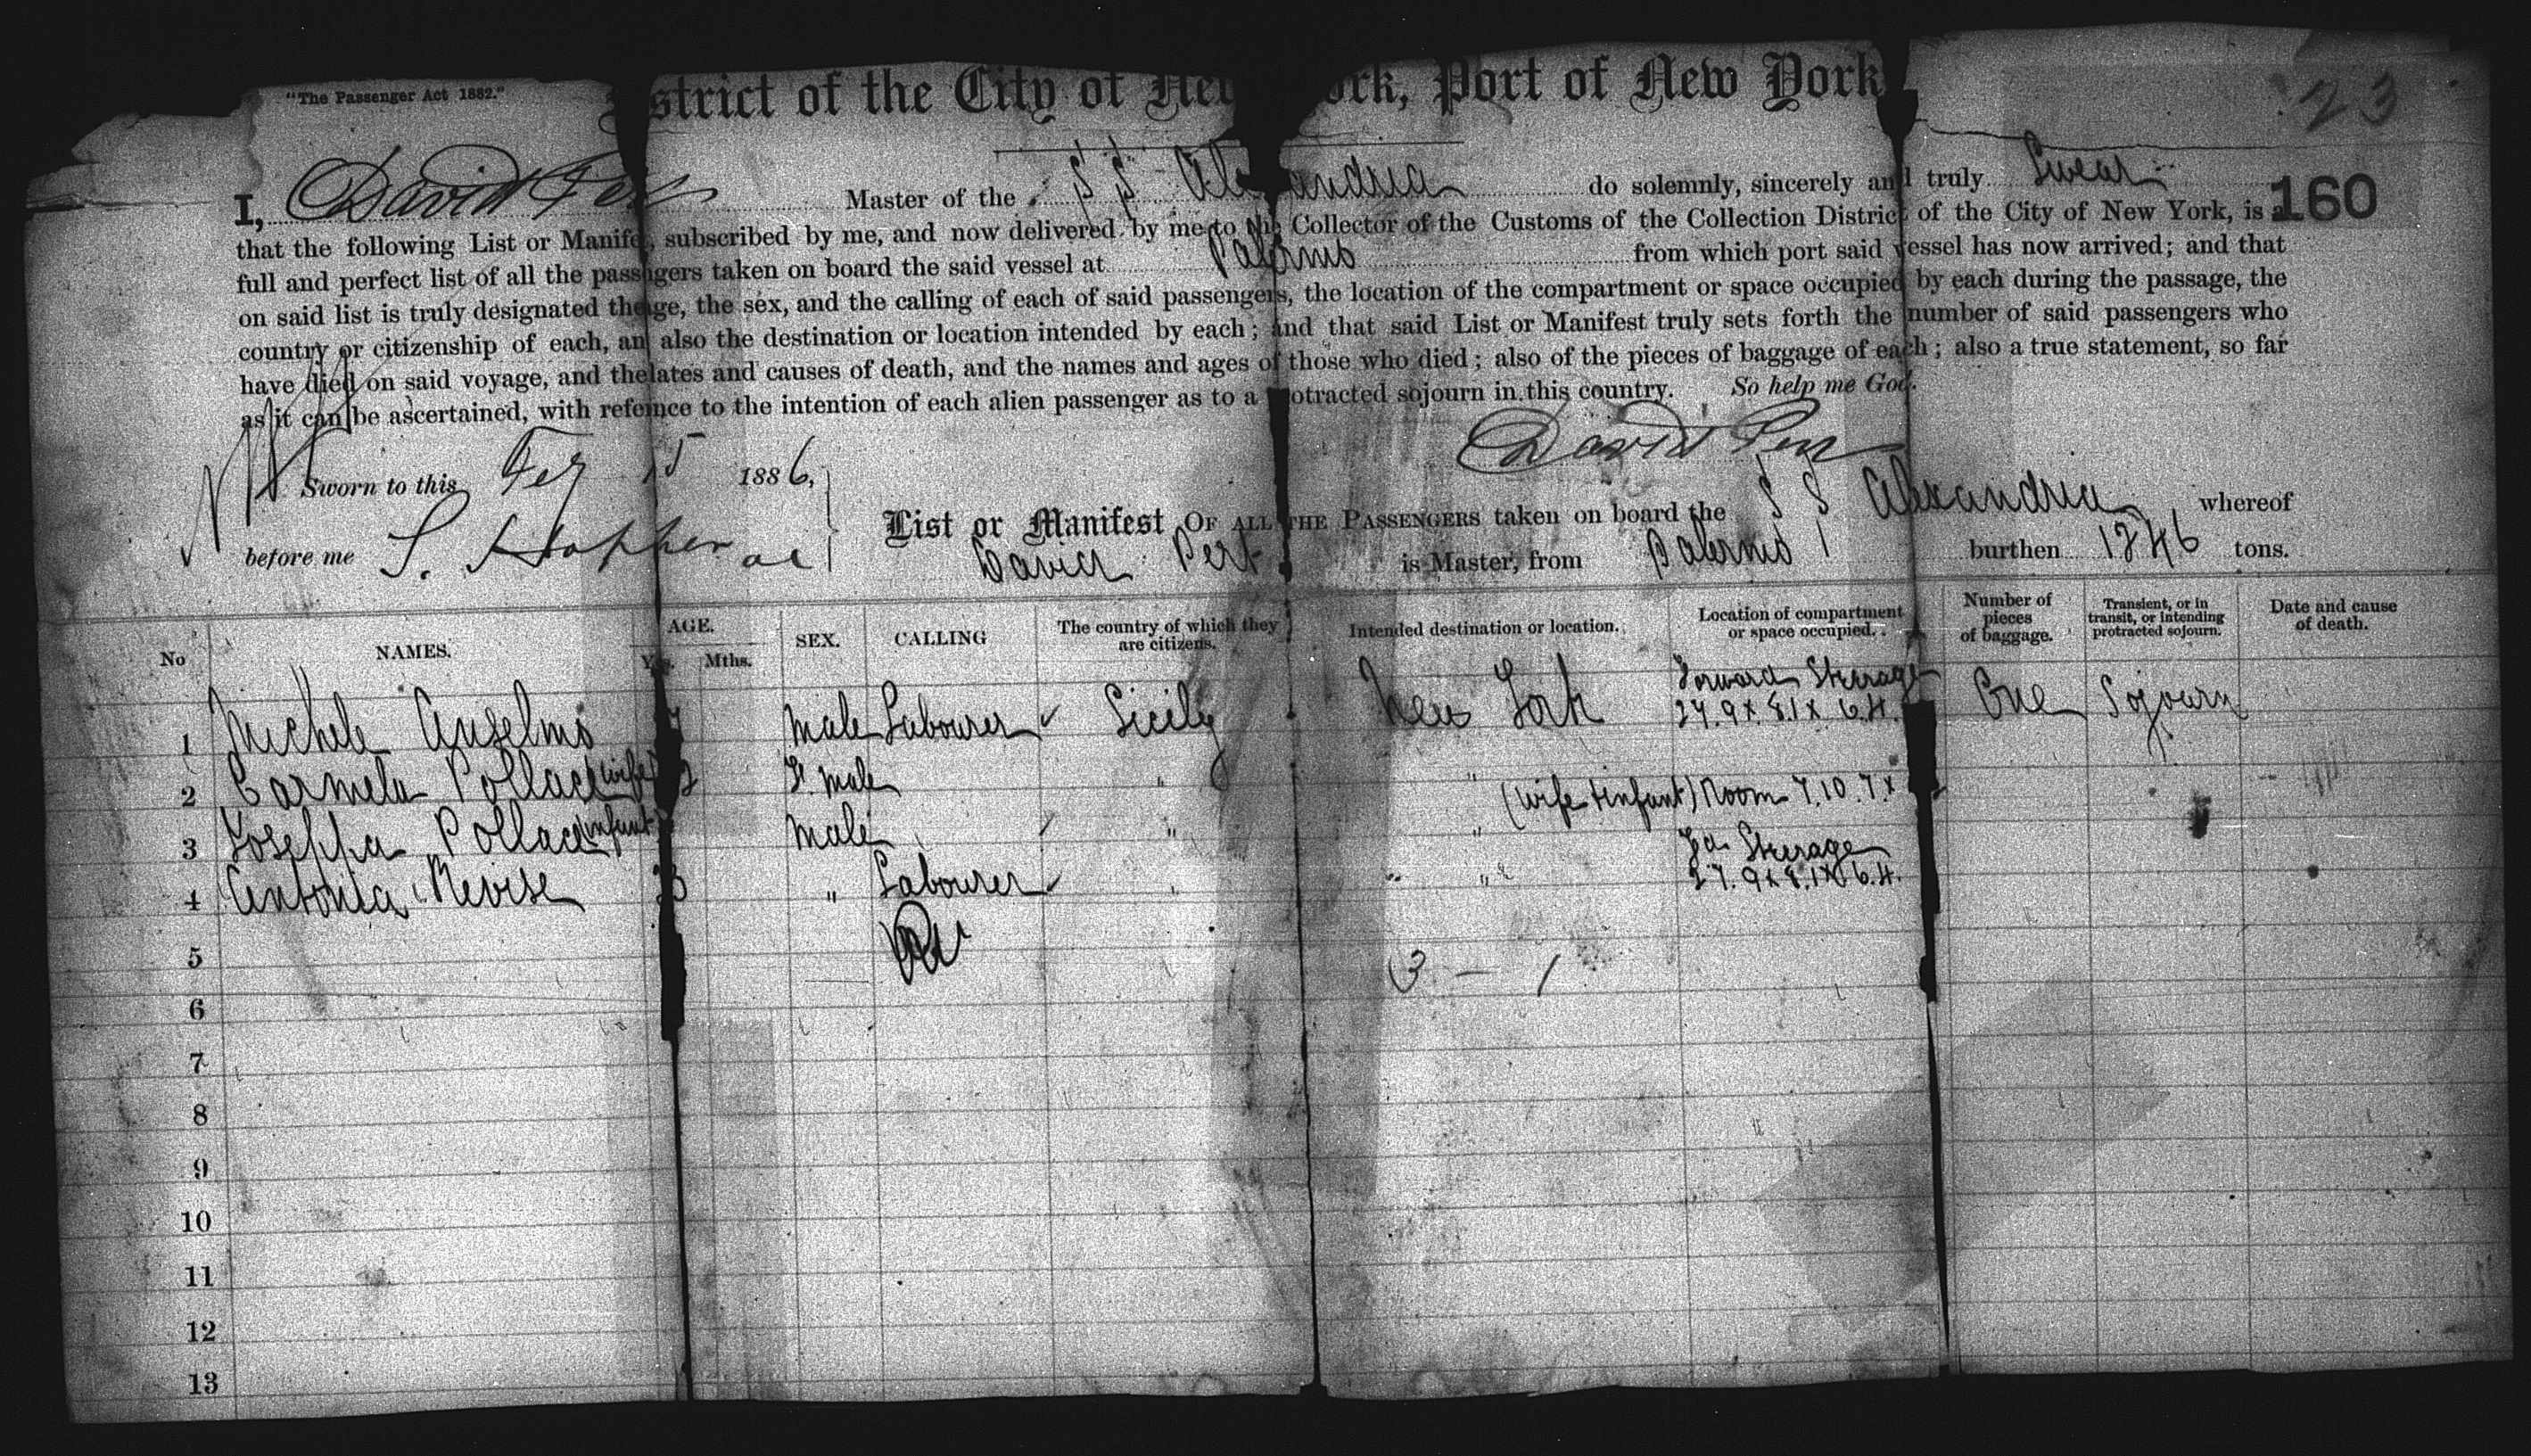 "The Passenger Act 1882."
strict of the City of New York, Port of New York
23
160
I, David Master of the S S Alexandria do solemnly, sincerely and truly Swear
that the following List or Manife, subscribed by me, and now delivered by me to the Collector of the Customs of the Collection District of the City of New York, is a
full and perfect list of all the passengers taken on board the said vessel at Palermo from which port said vessel has now arrived; and that
on said list is truly designated the age, the sex, and the calling of each of said passengers, the location of the compartment or space occupied by each during the passage, the
country or citizenship of each, an also the destination or location intended by each; and that said List or Manifest truly sets forth the number of said passengers who
have died on said voyage, and the ates and causes of death, and the names and ages of those who died; also of the pieces of baggage of each; also a true statement, so far
as it can be ascertained, with refeince to the intention of each alien passenger as to a otracted sojourn in this country. So help me God.
David
Sworn to this 15 1886,
before me
List or Manifest OF ALL THE PASSENGERS taken on board the S S Alexandria whereof
David is Master, from Palermo burthen tons.
No NAMES. AGE. Yrs. Mths. SEX. CALLING The country of which they are citizens. Intended destination or location. Location of compartment or space occupied. Number of pieces of baggage. Transient, or in transit, or intending protracted sojourn. Date and cause of death.
1 Michele Anselmo Male Labourer Sicily New York Forward Steerage 27.9 x 8.1 x 6.4. One Sojourn
2 Carmela Pollaci (wife) Fe male " " (wife + infant) Room 7.10.7 x
3 Pollaci (infant) male " "
4 Antonia " Labourer " " " Steerage 27.9 x 8.1 x 6.4.
5 3 — 1
6
7
8
9
10
11
12
13